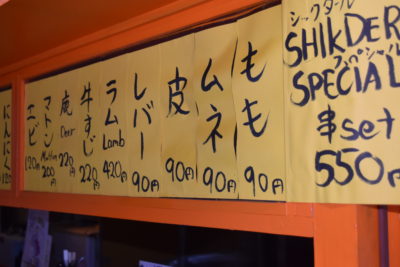 シックダール
SHIKDER
スペシャル
SPECIAL
串set
550円
もも
90円
ムネ
90円
皮
90円
レバー
90円
ラム
Lamb
420円
牛すじ
220円
鹿
Deer
220円
マトン
Mutton
200円
エビ
120円
にんにく